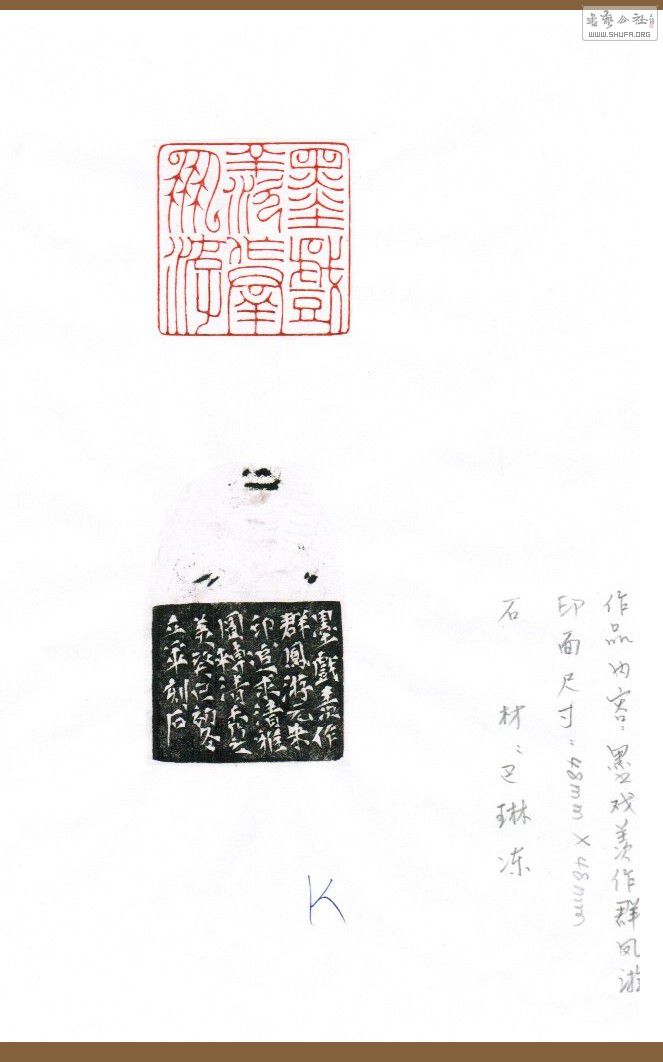 書藝公社
WWW.SHUFA.ORG
墨戲
羨作群
鳳游
墨戲羨作
群鳳游元朱
印追求清雅
圓
癸巳初冬
立平刻石
作品内容：墨戏羡作群凤游
印面尺寸：48mm×48mm
石 材：巴琳冻
K